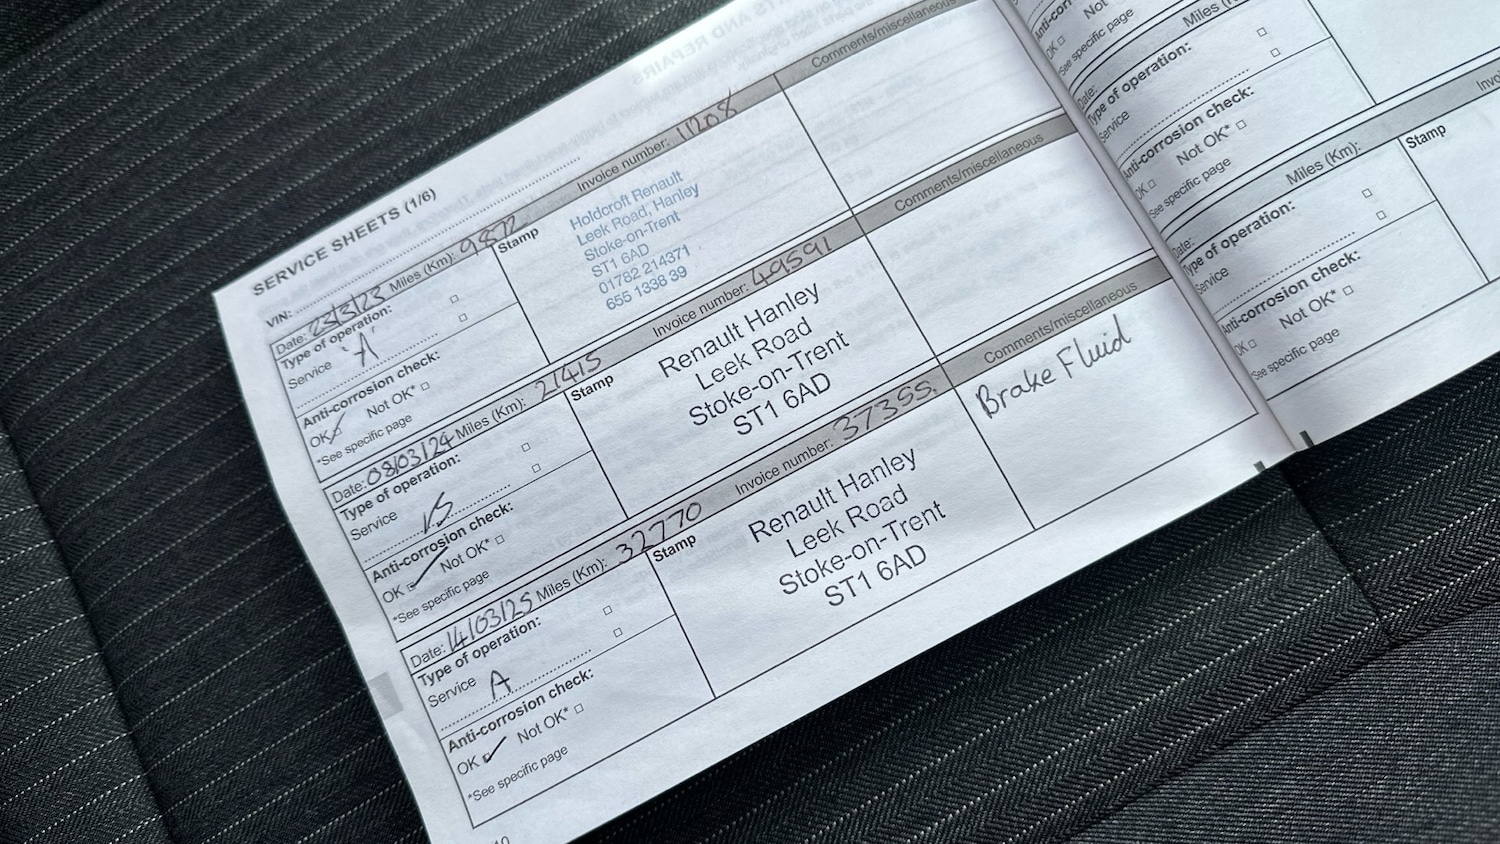 SERVICE SHEETS (1/6)
VIN:
Date: 23/3/23 Miles (Km): 9872 Invoice number: 11208 Comments/miscellaneous
Type of operation:
Service 'A'
Anti-corrosion check:
OK Not OK*
*See specific page
Stamp
Holdcroft Renault
Leek Road, Hanley
Stoke-on-Trent
ST1 6AD
01782 214371
655 1338 39
Date: 08/03/24 Miles (Km): 21415 Invoice number: 49591 Comments/miscellaneous
Type of operation:
Service B
Anti-corrosion check:
OK Not OK*
*See specific page
Stamp
Renault Hanley
Leek Road
Stoke-on-Trent
ST1 6AD
Date: 14/03/25 Miles (Km): 32770 Invoice number: 37355 Comments/miscellaneous
Type of operation:
Service A
Anti-corrosion check:
OK Not OK*
*See specific page
Stamp
Renault Hanley
Leek Road
Stoke-on-Trent
ST1 6AD
Brake Fluid
OK Not
*See specific page
Date: Miles
Type of operation:
Service
Anti-corrosion check:
OK Not OK*
*See specific page
Date: Miles (Km):
Type of operation:
Service
Anti-corrosion check:
OK Not OK*
*See specific page
Stamp